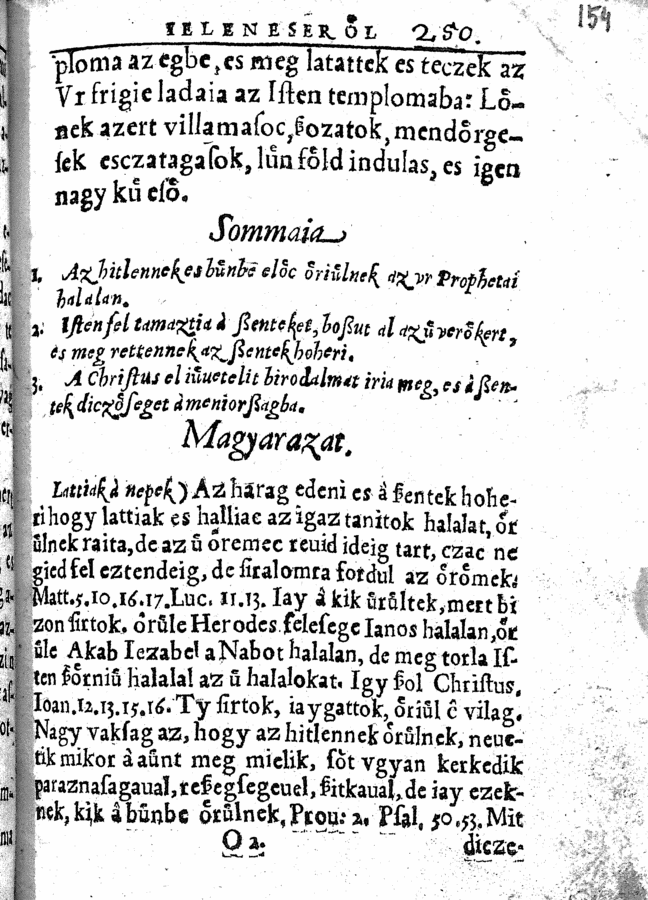 IELENESEROͤL 250.
154
ploma az egbe, es meg latattek es teczek az
Vr frigie ladaia az Iſten templomaba: Loͤ-
nek azert villamaſoc, ßozatok, mendoͤrge-
ſek esczatagaſok, luͤn foͤld indulas, es igen
nagy kuͤ eſoͤ.
Sommaia
1. Az hitlennek es buͤnbē eloͤc oͤriuͤlnek az vr Prophetai
halalan.
2. Iſten fel tamaztia à ßenteket, boßut al az uͤ veroͤkert,
es meg rettennek az ßentek hoheri.
3. A Chriſtus el iuͤuetelit birodalmat iria meg, es à ßen-
tek diczoͤſeget à menior ßagba.
Magyarazat.
Lattiak à nepek) Az harag edeni es â ßentek hohe-
ri hogy lattiak es halliac az igaz tanitok halalat, oͤr
uͤlnek raita, de az uͤ oͤremec reuid ideig tart, czac ne
gied fel eztendeig, de ſiralomra fordul az oͤroͤmek:
Matt. 5. 10. 16. 17. Luc. 11. 13. Iay â kik uͤruͤltek, mert bi
zon ſirtok. oͤruͤle Herodes feleſege Ianos halalan, oͤr
uͤle Akab Iezabel a Nabot halalan, de meg torla Iſ-
ten ßoͤrniuͤ halalal az uͤ halalokat. Igy ßol Chriſtus.
Ioan. 12. 13. 15. 16. Ty ſirtok, iaygattok, oͤriuͤl ĉ vilag.
Nagy vakſag az, hogy az hitlennek oͤruͤlnek, neue-
tik mikor à auͤnt meg mielik, ſoͤt vgyan kerkedik
paraznaſagaual, reßegſegeuel, ßitkaual, de iay ezek-
nek, kik â buͤnbe oͤruͤlnek, Prou: 2. Pſal. 50. 53. Mit
O 2. dicze-